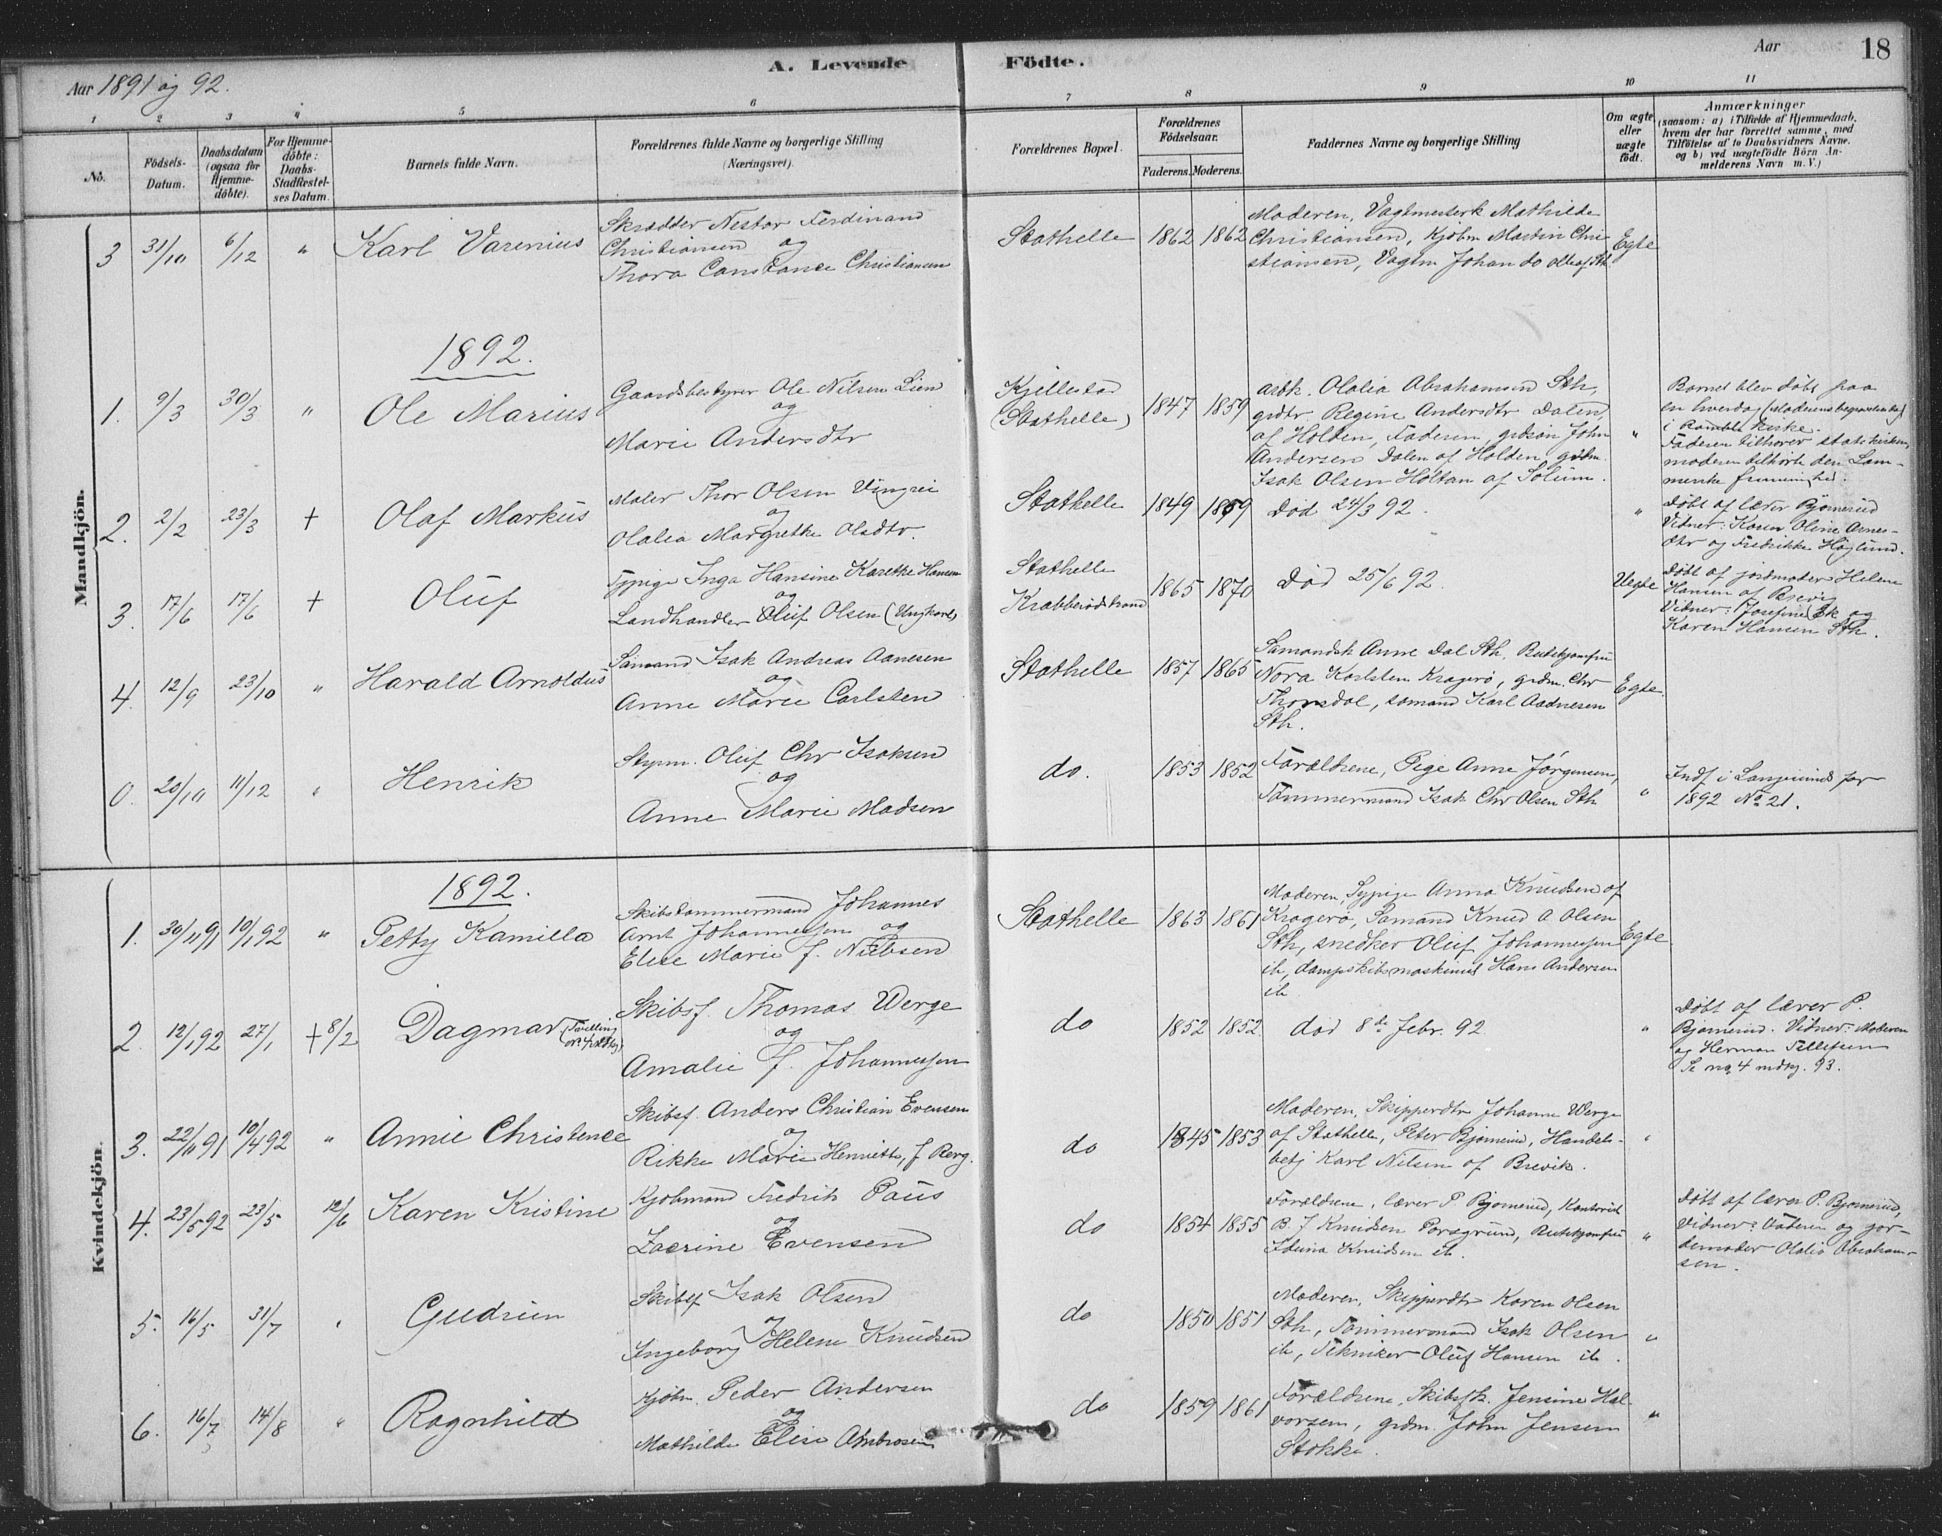 Aar 1891 og 92.
A. Levende
Födte.
Aar
18
1
2
3
4
5
6
7
8
9
10
11
No.
Födsels-
Datum.
Daabsdatum
(ogsaa for
Hjemme-
döbte).
For Hjemme-
döbte:
Daabs-
Stadfæstel-
ses Datum.
Barnets fulde Navn.
Forældrenes fulde Navne og borgerlige Stilling
(Næringsvei).
Forældrenes Bopæl.
Forældrenes
Födselsaar.
Faderens.
Moderens.
Faddernes Navne og borgerlige Stilling
Om ægte
eller
uægte
födt.
Anmærkninger
(saasom: a) i Tilfælde af Hjemmedaab,
hvem der har forrettet samme, med
Tilföielse af to Daabsvidners Navne.
og b) ved uægtefödte Börn An-
melderens Navn m. V.)
Mandkjön.
3 31/10 6/12 " Karl Varenius
Skrædder Nestor Ferdinand
Christiansen og
Thora Constance Christiansen
Stathelle 1862 1862
Moderen, Mathilde
Christiansen, Kjøbm Martin Chri-
stiansen, Johan do alle af Sth
Egte
1892.
1. 9/3 30/3 " Ole Marius
Gaardsbestyrer Ole Nilsen Lien
og
Marie Andersdtr
Kjellestad
(Stathelle)
1847 1859
Olalia Abrahamsen Sth,
grdtr Regine Andersdtr Dalen,
af Holden, Faderen, grdsøn John
Andersen Dalen af Holden, grdm.
Isak Olsen Holtan af Solum.
"
Barnet blev døbt paa
en hverdag (Moderens begravelsesdag)
i Bamble kirke.
Faderen tilhører statskirken,
moderen tilhørte den Lam-
merske frimenighed.
2. 2/2 23/3 + Olaf Markus
Maler Thor Olsen
og
Olalia Margrethe Olsdtr.
Stathelle 1849 1859 Død 24/3 92.
"
Døbt af lærer Bjørnerud
Vidner: Karen Oline Arnes-
dtr og Fredrikke Høglund.
3. 17/6 17/6 + Oluf
Sypige Inga Hansine Karethe Hansen
og
Landhandler Oluf Olsen (Ungkarl)
Stathelle
Krabberødstrand
1865 1870 Død 25/6 92.
Uegte
Døbt af jordmoder Helene
Hansen af Brevig
Vidner: Josefine Ek og
Karen Hansen Sth.
4. 12/9 23/10 " Harald Arnoldus
Sømand Isak Andreas Aanesen
og
Anne Marie Carlsten
Stathelle 1857 1865
Sømandsk Anne Dal Sth, Butikjomfru
Nora Karlsten Kragerø, grdm. Chr
Thorsdal, sømand Karl Aadnesen
Sth.
Egte.
0. 20/10 11/12 " Henrik
Styrm. Oluf Chr Isaksen
og
Anne Marie Madsen
do. 1853 1852
Forældrene, Pige Anne Jørgensen,
Tømmermand Isak Chr Olsen Sth
"
Indf i Langesunds for
1892 No 21.
Kvindekjön.
1892.
1. 30/11 91 10/1 92 " Petty Kamilla
Skibstømmermand Johannes
Arnt Johannessen og
Elise Marie f. Nielsen
Stathelle 1863 1861
Moderen, Sypige Anna Knudsen af
Kragerø, Sømand Knud A. Olsen
Sth, snedker Oluf Johannessen
ib, dampskibsmaskinist Hans Andersen
ib
Egte
2. 12/1 92 27/1 + 8/2 Dagmar (Tvilling
Skibsf. Thomas Werge
og
Amalie f. Johannessen
do 1852 1852 død 8de febr. 92
"
Døbt af lærer P.
Bjørnerud. Vidner: Moderen
og Herman Tellefsen
Se no 4 mdkj. 93.
3. 22/11 91 10/4 92 " Annie Christence
Skibsf. Anders Christian Evensen
og
Rikke Marie Henriette, f Berg.
do 1845 1853
Moderen, Skipperdtr Johanne Werge
af Stathelle, Peter Bjørnerud, Handels-
betj Karl Nilsen af Brevik.
"
4. 23/5 92 23/5 12/6 Karen Kristine
Kjøbmand Fredrik Paus
og
Zacrine Evensen
do 1854 1855
Forældrene, lærer P Bjørnerud, Kontorist
B. J Knudsen Porsgrund, Butikjomfru
Iduna Knudsen ib.
"
Døbt af lærer P. Bjørnerud,
Vidner: Faderen og jor-
demoder Olalia Abraham-
sen.
5. 16/5 31/7 " Gudrun
Skibsf Isak Olsen
og
Ingeborg Helene Knudsen
do 1850 1851
Moderen, Skipperdtr Karen Olsen
Sth, Tømmermand Isak Olsen
ib, Tekniker Oluf Hansen ib.
"
6. 16/7 14/8 " Ragnhild
Kjøbm. Peder Andersen
og
Mathilde Elise Ambrosen
do 1859 1861
Forældrene, Skibsfk. Jensine Hal-
vorsen, grdm. John Jensen
Stokke.
"